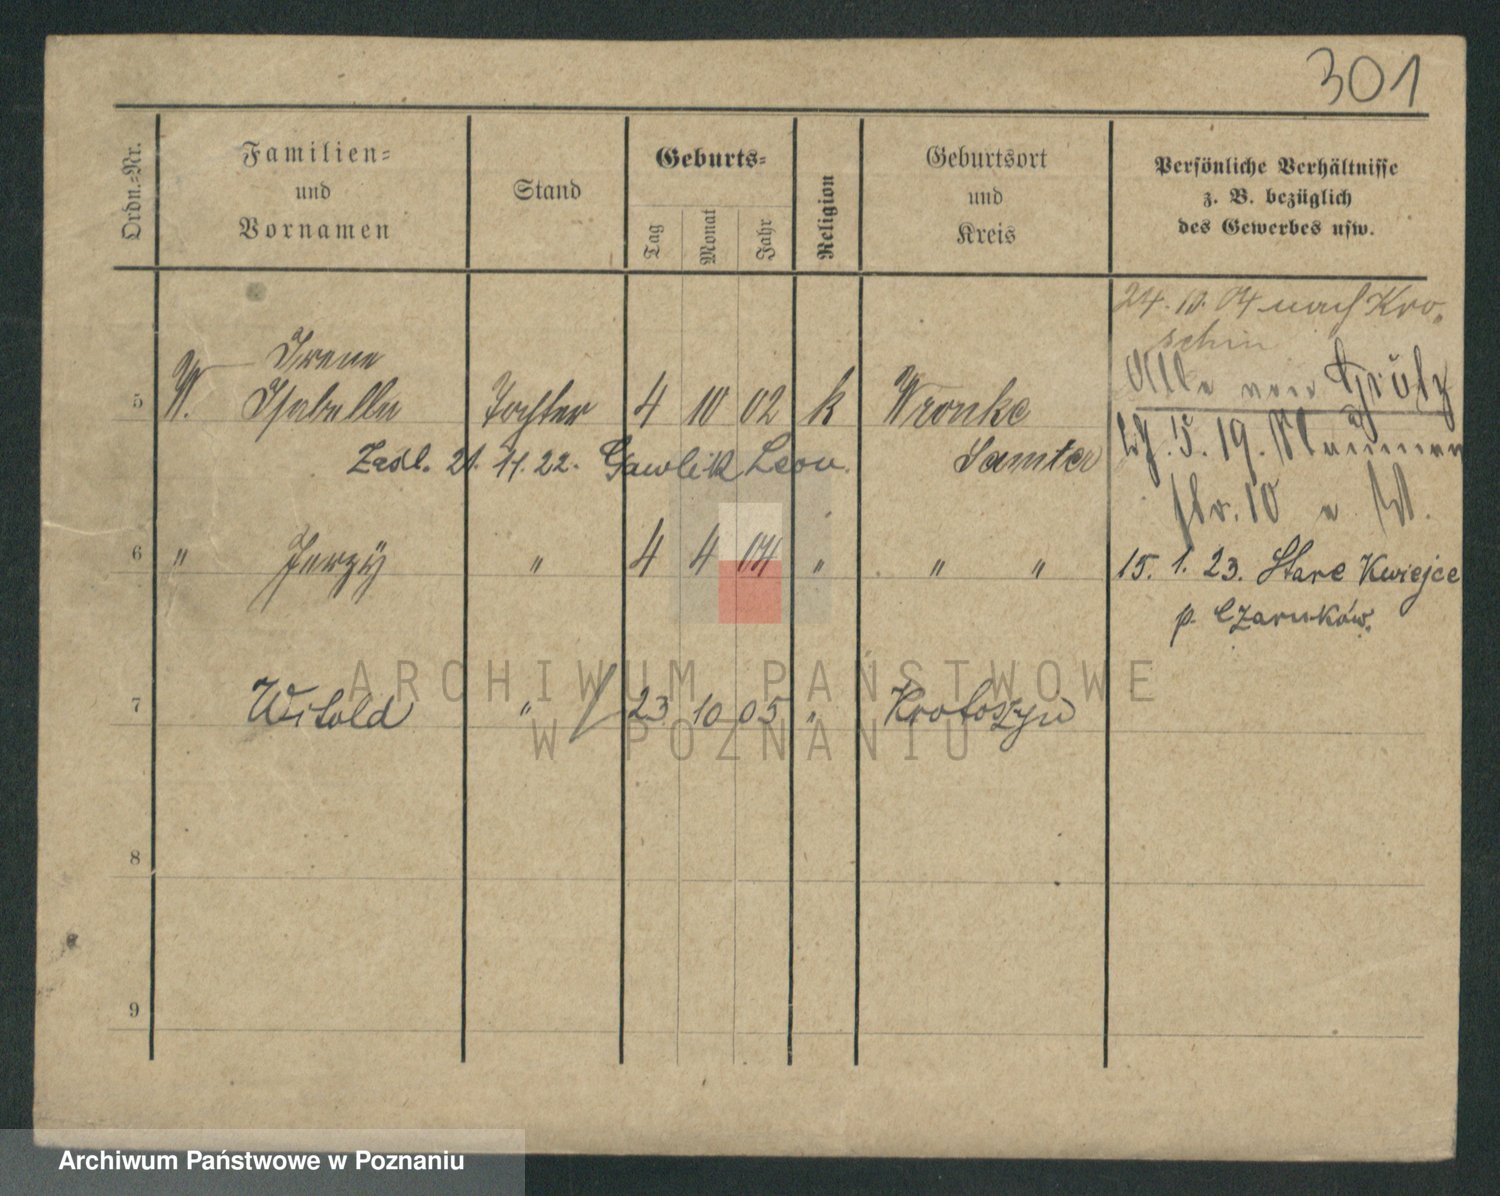 301
Ordn.-Nr.
Familien-
und
Vornamen
Stand
Geburts-
Tag
Monat
Jahr
Religion
Geburtsort
und
Kreis
Persönliche Verhältnisse
z. B. bezüglich
des Gewerbes usw.
24. 10. 04 nach Kro-
schin
Irene
Alle von Grätz
5 W. Isabella Tochter 4 10 02 k Wronke
Zasl. 21. 11. 22. Gawlik Leon. Samter
5. 19.
str. 10 W.
6 " Jerzÿ " 4 4 04 " " "
15. 1. 23. Stare Kwiejce
p. Czarnków.
7 Witold " 23 10 05 " Krotoszyn
8
9
ARCHIWUM PAŃSTWOWE
W POZNANIU
Archiwum Państwowe w Poznaniu